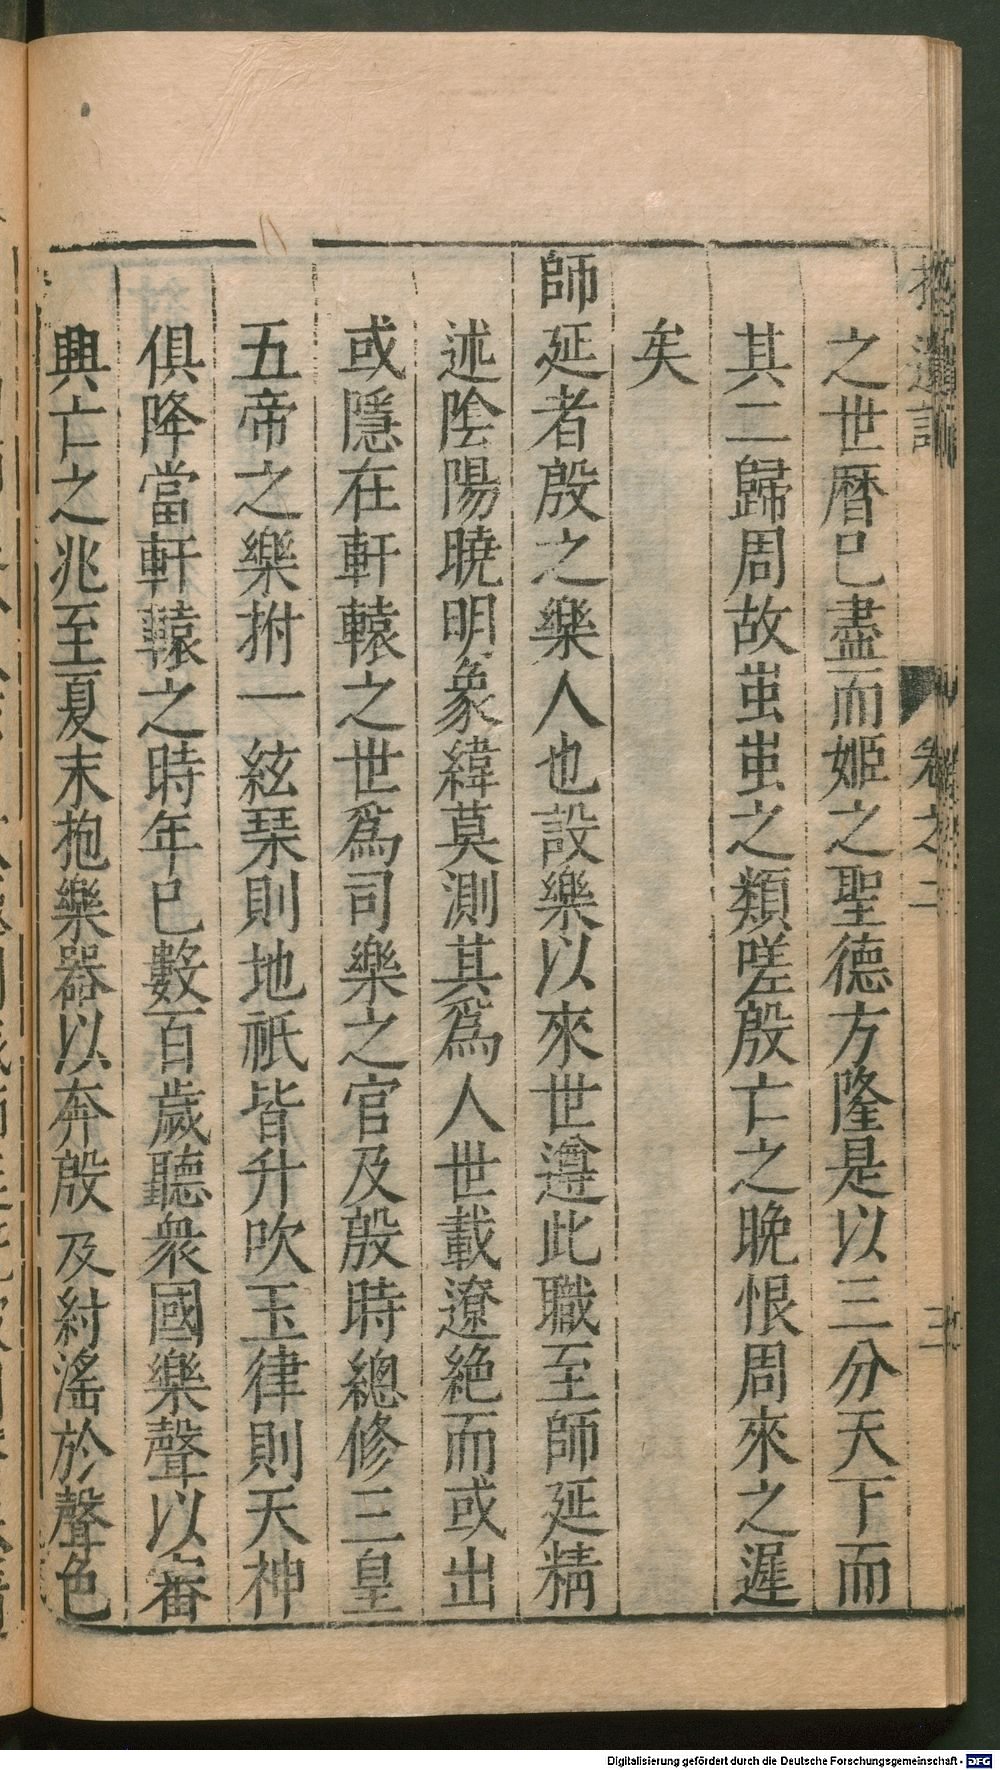 拾遺記
卷之二
三
之世曆已盡而姬之聖德方隆是以三分天下而
其二歸周故蚩蚩之類嗟殷亡之晚恨周來之遲
矣
師延者殷之樂人也設樂以來世遵此職至師延精
述陰陽曉明象緯莫測其爲人世載遼絶而或出
或隱在軒轅之世爲司樂之官及殷時總修三皇
五帝之樂拊一絃琴則地祇皆升吹玉律則天神
俱降當軒轅之時年已數百歲聽衆國樂聲以審
興亡之兆至夏末抱樂器以奔殷及紂滛於聲色
Digitalisierung gefördert durch die Deutsche Forschungsgemeinschaft - DFG